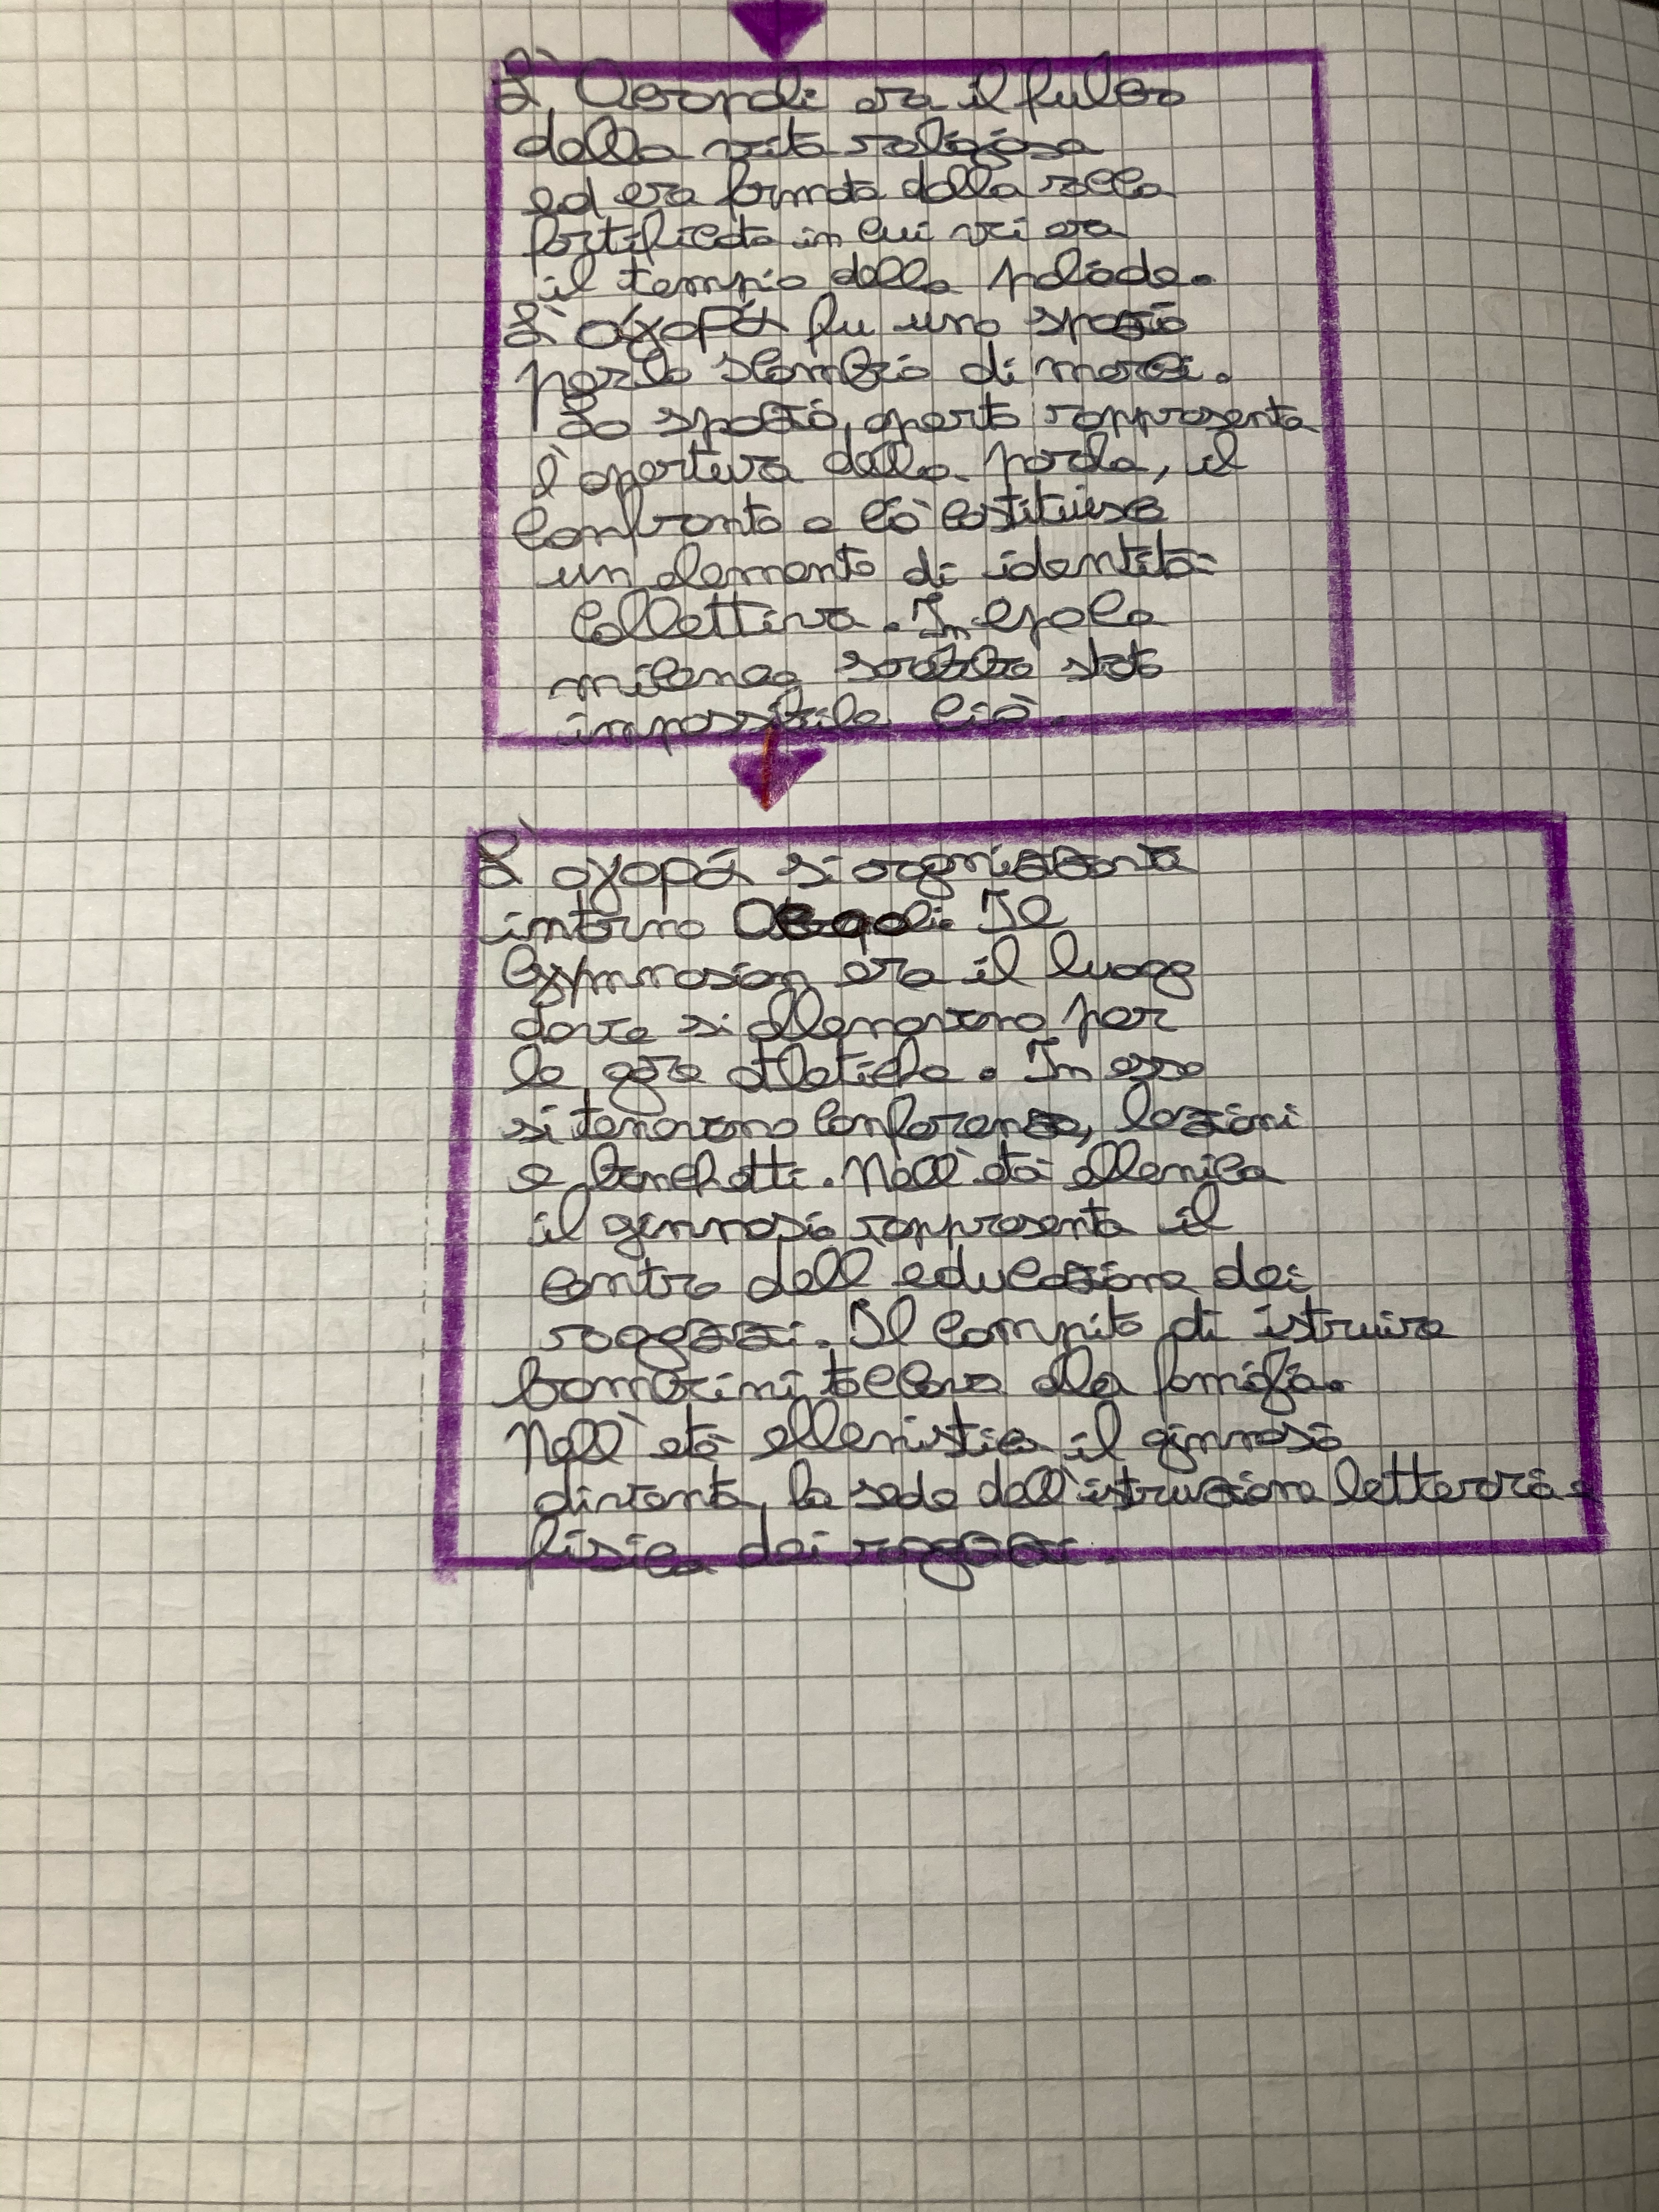 L'Acropoli era il fulcro
della vita religiosa
ed era formata dalla rocca
fortificata in cui vi era
il tempio della poliade.
L'ἀγορά fu uno spazio
per lo scambio di merci.
Lo spazio aperto rappresenta
l'apertura della parola, il
confronto e ciò costituisce
un elemento di identità
collettiva. In epoca
micenea sarebbe stato
impossibile ciò.
L'αγορά si organizzava
intorno Acropoli. Il
Gymnasion era il luogo
dove si allenavano per
le gare atletiche. In esso
si tenevano conferenze, lezioni
e banchetti. Nell'età ellenica
il ginnasio rappresenta il
centro dell educazione dei
ragazzi. Il compito di istruire
bambini toccava alla famiglia.
Nell'età ellenistica il ginnasio
diventa la sede dell'istruzione letteraria e
fisica dei ragazzi.